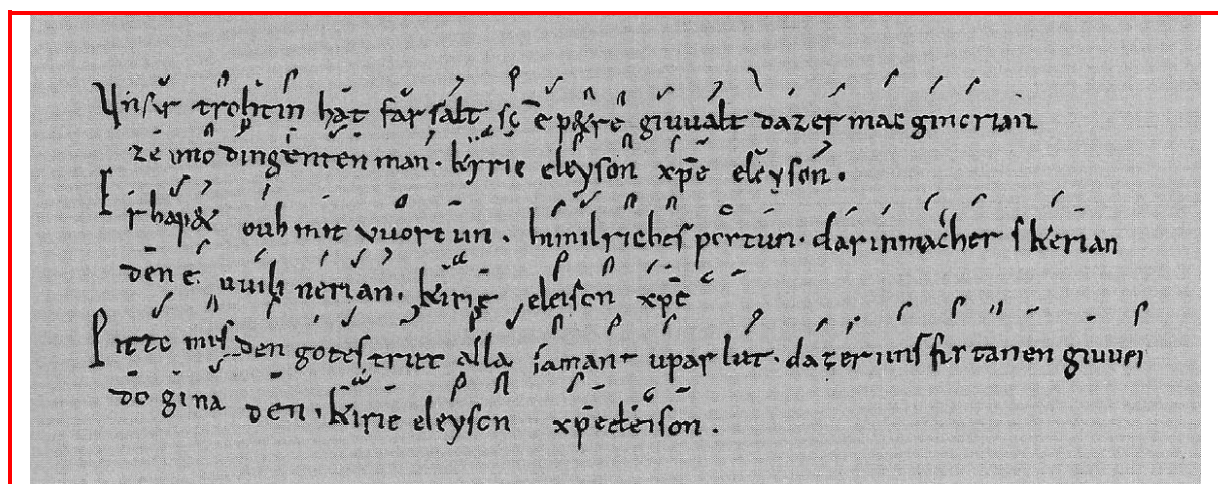 Unsar trohtin hat farsalt sc̄e p&re giuualt daz er mac ginerian
ze imo dingenten man. kyrie eleyson xp̄e eleyson.
Er hap& ouh mit vuortun. himilriches portun. dar in mach er skerian
den er uuili nerian. kirie eleison xp̄e
Pittemes den gotes trut alla samant upar lut. daz er uns firtanen giuuer
do gina den. kirie eleyson xp̄e eleison.